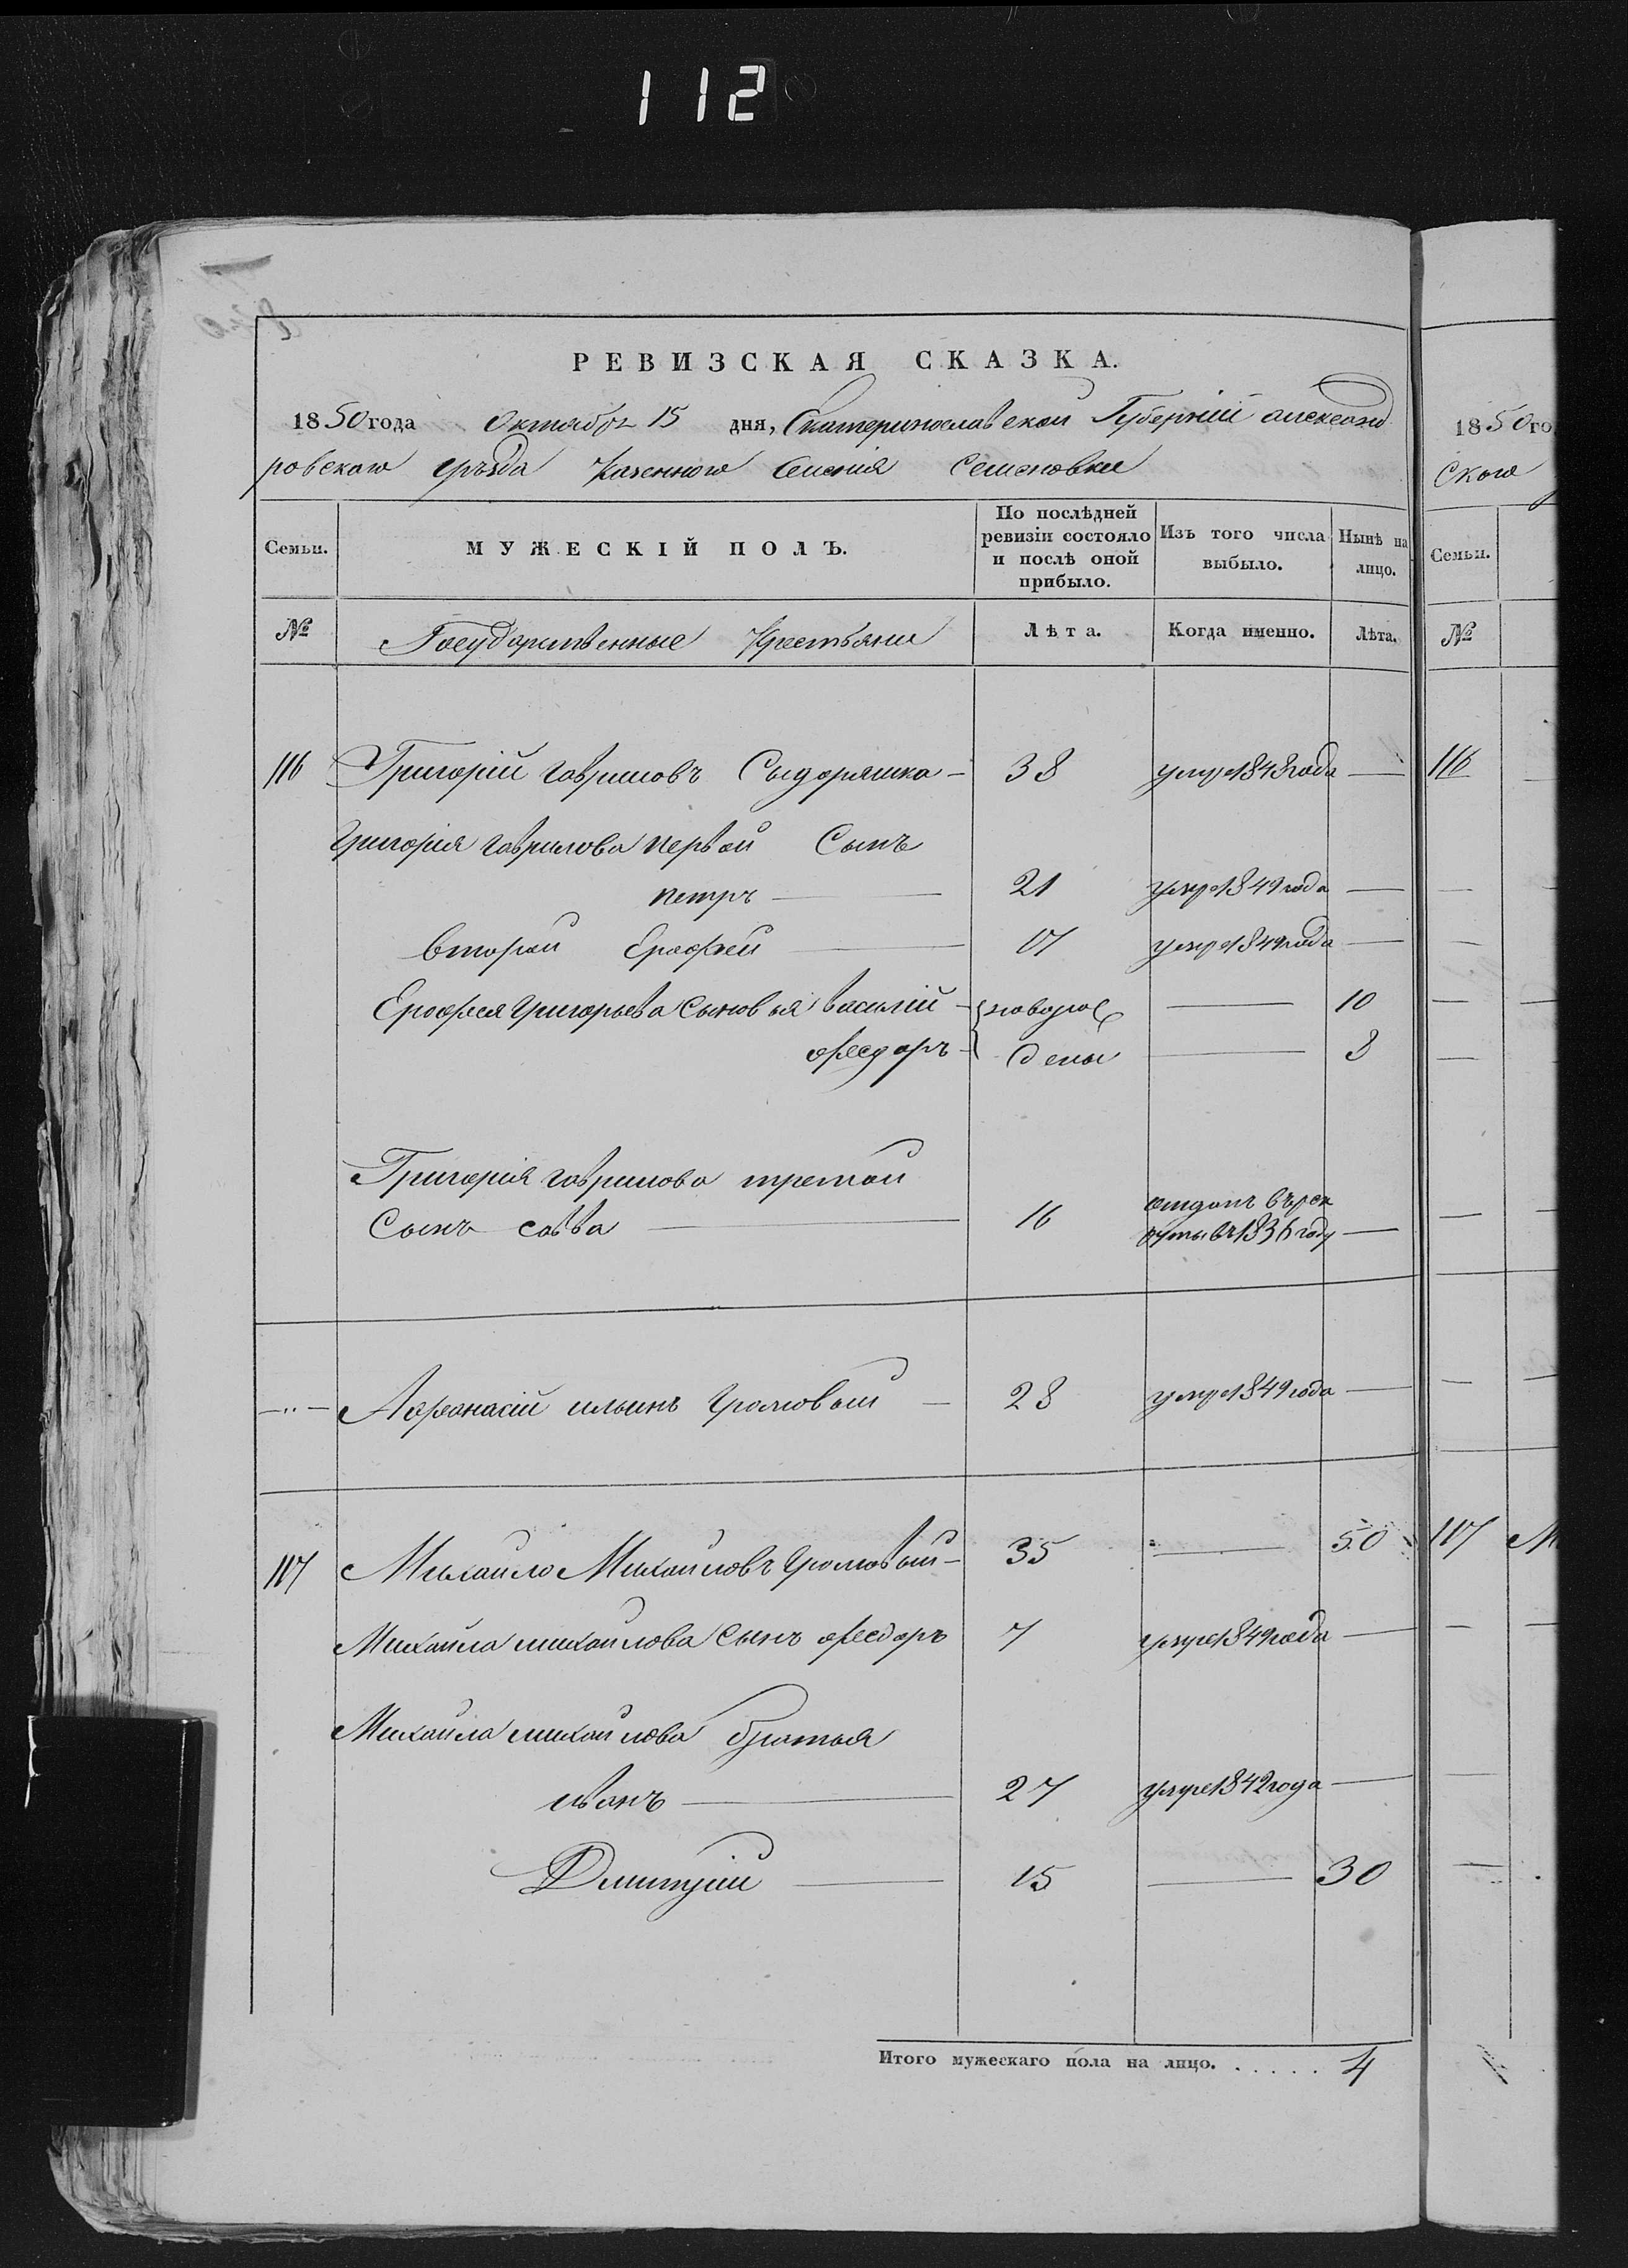 112
РЕВИЗСКАЯ СКАЗКА.
1850 года Октября 15 дня, Екатеринославской Губерніи александ
ровского уѣзда Казенного Селенія Семеновки
Семьи.
МУЖЕСКІЙ ПОЛЪ.
По послѣдней ревизіи состояло и послѣ оной прибыло.
Изъ того числа выбыло.
Нынѣ на лицо.
№
Государственные Крестьяни
Лѣта.
Когда именно.
Лѣта.
116 Григорій гавриловъ Сыдоряшка — 38 умре 1848 года —
Григорія гаврилова первой Сынъ
петръ — 21 умре 1849 года —
второй Ерофей — 17 умре 1849 года —
Ерофея Григорьева сыновья василій — новорож — 10
феодоръ — дены — 8
Григорія гаврилова третой
Сынъ савва — 16 отданъ въ рек
руты въ 1836 году —
—„— Афонасій ильинъ Громовой — 28 умре 1849 года —
117 Михайло Михайловъ Громовый — 35 — 50
Михайла михайлова сынъ феодоръ 7 умре 1849 года —
Михайла михайлова братья
иванъ — 27 умре 1842 года —
Дмитрій — 15 — 30
Итого мужескаго пола на лицо. . . . . . 4
1850 го
ского
Семьи.
№
116
117 М